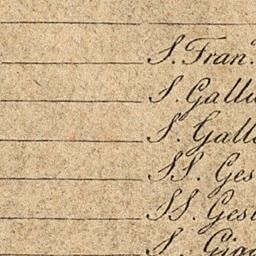 S. Fran.
S. Gallu
S. Galla
SS. Ges
SS. Gesu
S. Giac